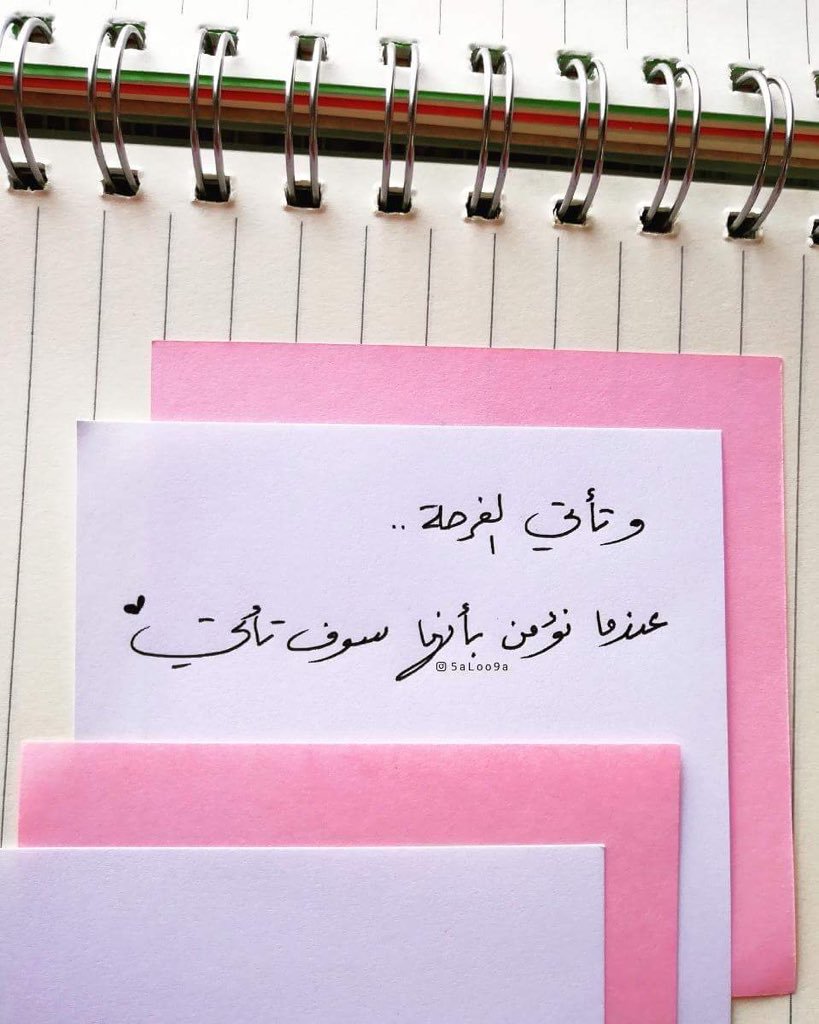 وتأتي الفرحة ..
عندما نؤمن بأنها سوف تأتي
5aLoo9a